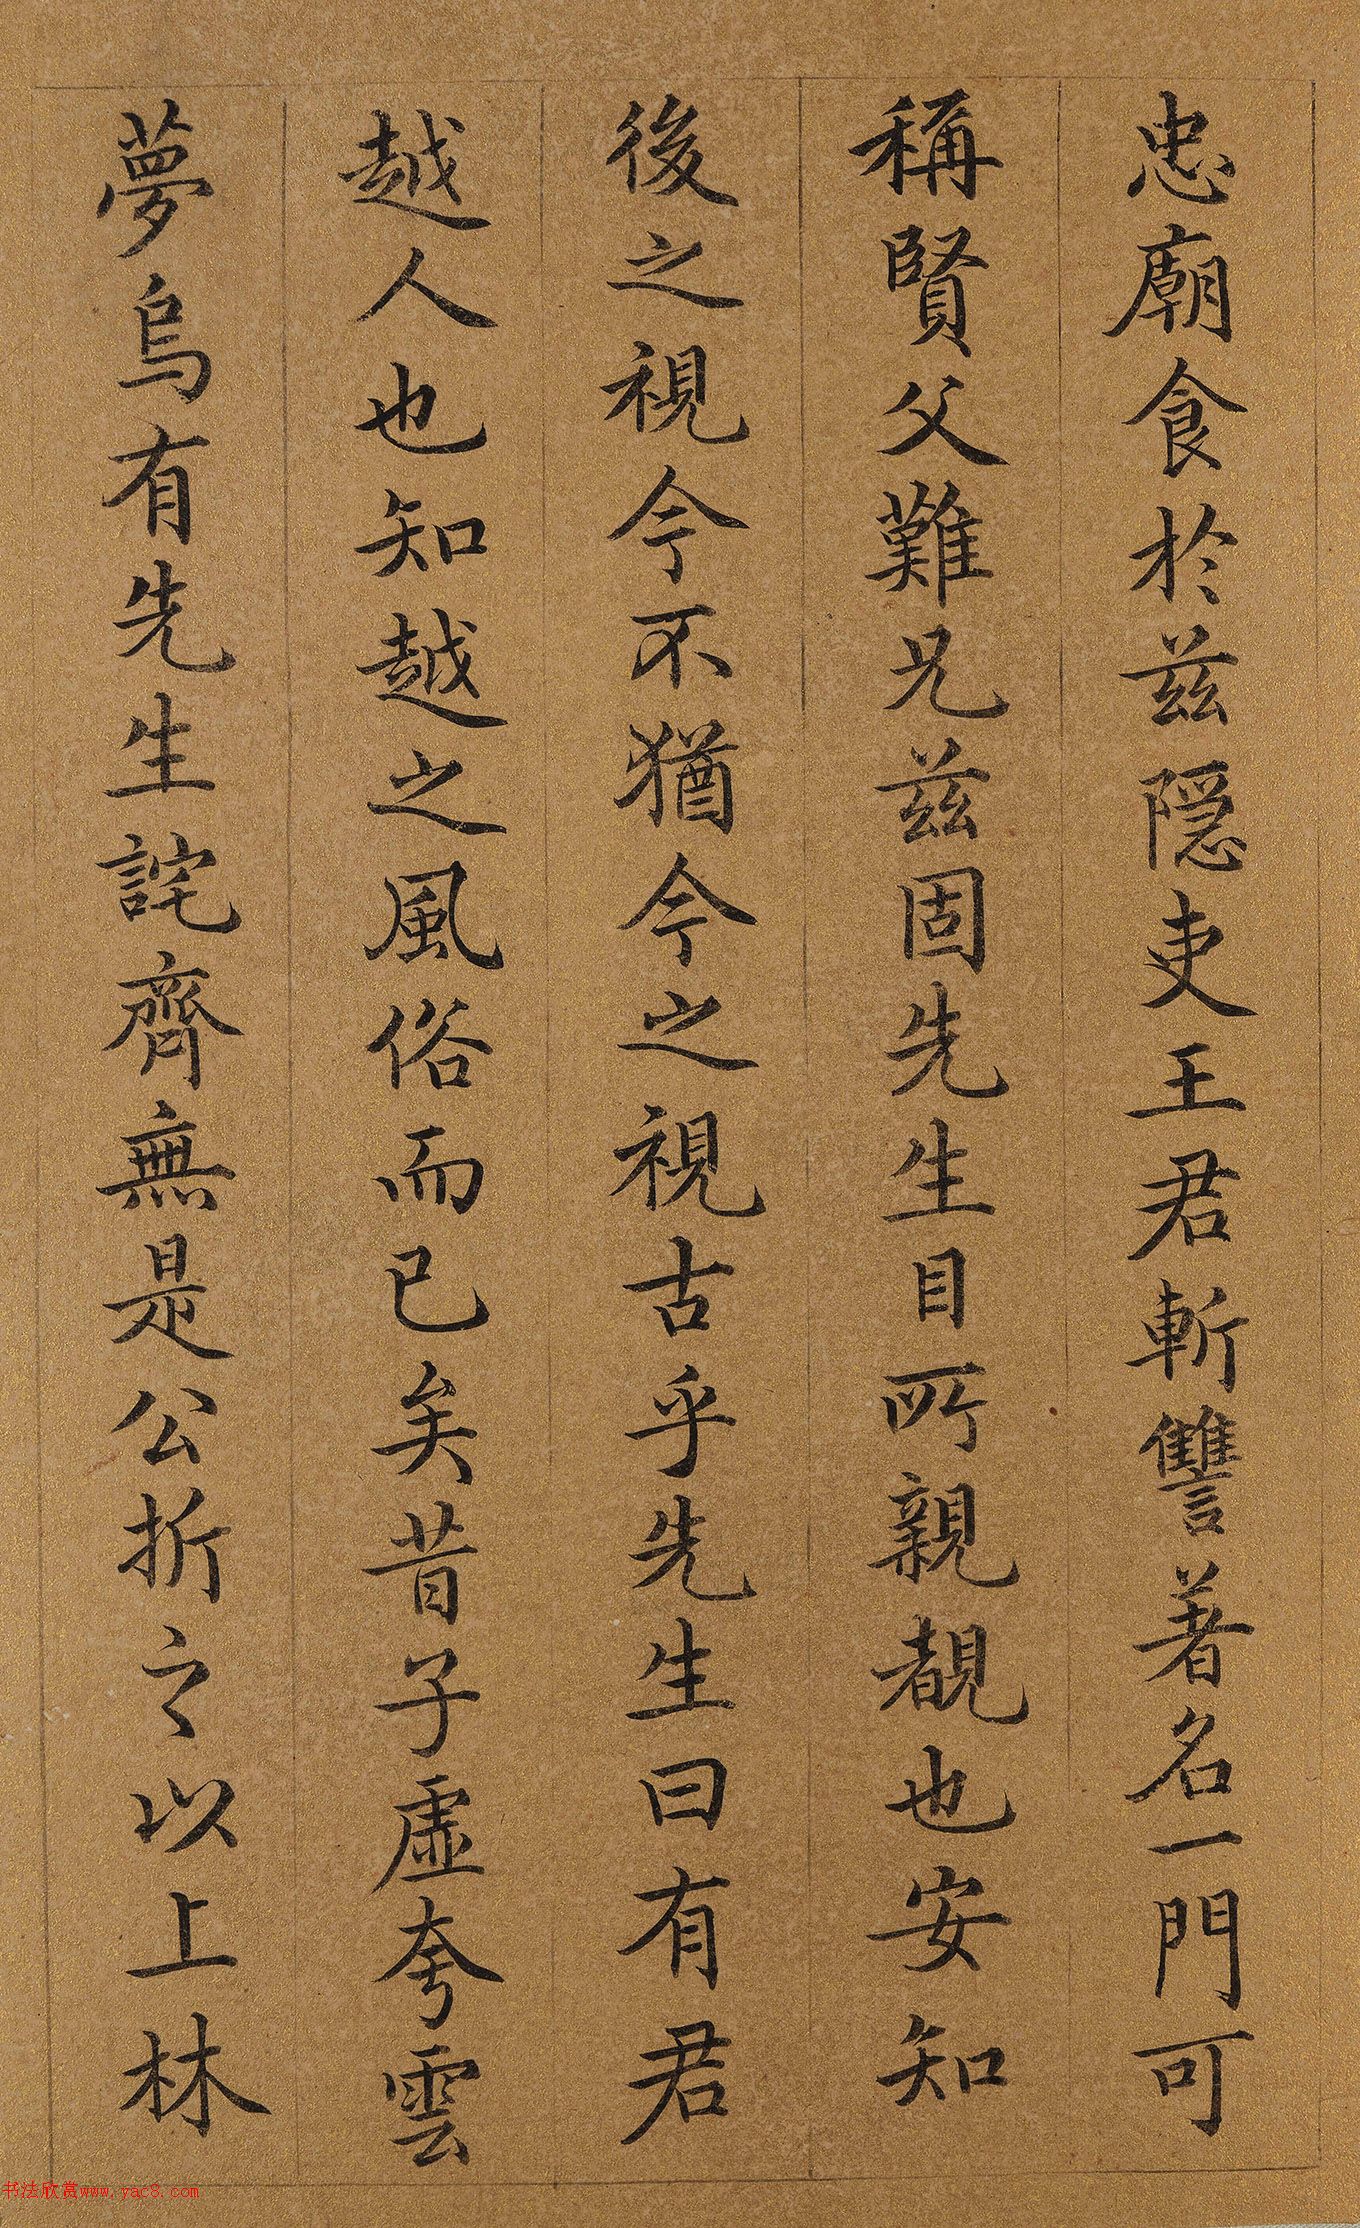 忠廟食於兹隱吏王君斬讐著名一門可
稱賢父難兄兹固先生目所親覩也安知
後之視今不猶今之視古乎先生曰有君
越人也知越之風俗而已矣昔子虛夸雲
夢烏有先生詫齊無是公折之以上林
书法欣赏www.yac8.com